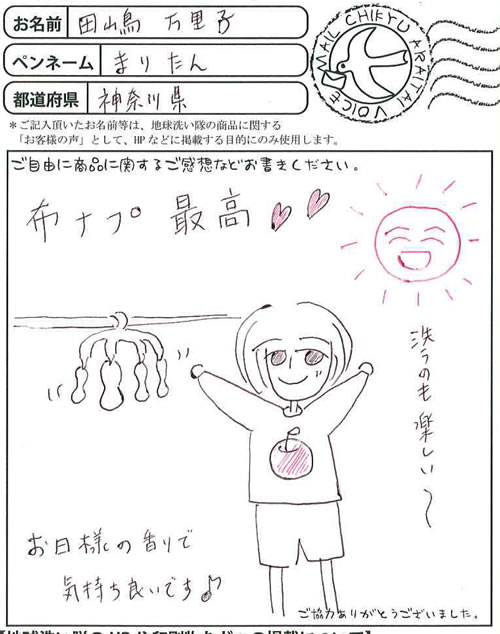 お名前 田嶋 万里子
ペンネーム まりたん
都道府県 神奈川県
VOICE MAIL CHIKYU ARAITAI
＊ご記入頂いたお名前等は、地球洗い隊の商品に関する
「お客様の声」として、HPなどに掲載する目的にのみ使用します。
ご自由に商品に関するご感想などお書きください。
布ナプ 最高
洗うのも楽しい〜
お日様の香りで
気持ち良いです♪
ご協力ありがとうございました。